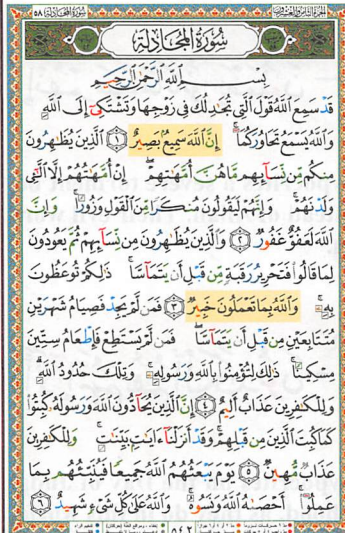 سُورَةُ المُجَادلة ٥٨
سُورَةُ الْمُجَادلَةِ
بِسْمِ اللَّهِ الرَّحْمَٰنِ الرَّحِيمِ
قَدْ سَمِعَ اللَّهُ قَوْلَ الَّتِي تُجَادِلُكَ فِي زَوْجِهَا وَتَشْتَكِي إِلَى اللَّهِ
وَاللَّهُ يَسْمَعُ تَحَاوُرَكُمَا ۚ إِنَّ اللَّهَ سَمِيعٌ بَصِيرٌ ١ الَّذِينَ يُظَاهِرُونَ
مِنكُم مِّن نِّسَائِهِم مَّا هُنَّ أُمَّهَاتِهِمْ ۖ إِنْ أُمَّهَاتُهُمْ إِلَّا اللَّائِي
وَلَدْنَهُمْ ۚ وَإِنَّهُمْ لَيَقُولُونَ مُنكَرًا مِّنَ الْقَوْلِ وَزُورًا ۚ وَإِنَّ
اللَّهَ لَعَفُوٌّ غَفُورٌ ٢ وَالَّذِينَ يُظَاهِرُونَ مِن نِّسَائِهِمْ ثُمَّ يَعُودُونَ
لِمَا قَالُوا فَتَحْرِيرُ رَقَبَةٍ مِّن قَبْلِ أَن يَتَمَاسَّا ۚ ذَٰلِكُمْ تُوعَظُونَ
بِهِ ۚ وَاللَّهُ بِمَا تَعْمَلُونَ خَبِيرٌ ٣ فَمَن لَّمْ يَجِدْ فَصِيَامُ شَهْرَيْنِ
مُتَتَابِعَيْنِ مِن قَبْلِ أَن يَتَمَاسَّا ۖ فَمَن لَّمْ يَسْتَطِعْ فَإِطْعَامُ سِتِّينَ
مِسْكِينًا ۚ ذَٰلِكَ لِتُؤْمِنُوا بِاللَّهِ وَرَسُولِهِ ۚ وَتِلْكَ حُدُودُ اللَّهِ ۗ
وَلِلْكَافِرِينَ عَذَابٌ أَلِيمٌ ٤ إِنَّ الَّذِينَ يُحَادُّونَ اللَّهَ وَرَسُولَهُ كُبِتُوا
كَمَا كُبِتَ الَّذِينَ مِن قَبْلِهِمْ ۚ وَقَدْ أَنزَلْنَا آيَاتٍ بَيِّنَاتٍ ۚ وَلِلْكَافِرِينَ
عَذَابٌ مُّهِينٌ ٥ يَوْمَ يَبْعَثُهُمُ اللَّهُ جَمِيعًا فَيُنَبِّئُهُم بِمَا
عَمِلُوا ۚ أَحْصَاهُ اللَّهُ وَنَسُوهُ ۚ وَاللَّهُ عَلَىٰ كُلِّ شَيْءٍ شَهِيدٌ ٦
٥٤٢